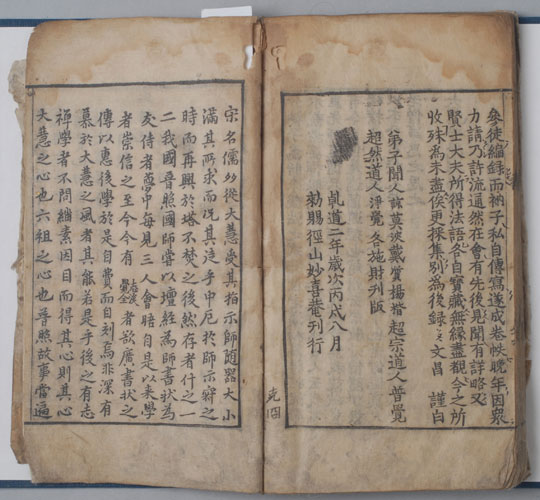 參徒編録而衲子私自傳寫遂成卷帙晩年因衆
力請乃許流通然在會有先後見聞有詳略又
賢士大夫所得法語各自寶藏無縁盡覩今之所
收殊為未盡俟更採集別為後録 文昌 謹白
弟子聞人 黃 戴質 楊 超宗道人普覺
超然道人淨覺各施財刋版
乹道二年歳次丙戌八月
勑賜徑山妙喜菴刋行
宗名儒紗從大慧受其指示師随器大小
滿其所求而况其迭手中厄於師示寂之
時而再興於塔不焚之後然存者什之一
二我國普照國師嘗以壇經為師書狀為
友侍者夢中每見三人會晤自是以来學
者崇信之至今今有 者欲廣書狀之
傳以惠後學於是自費而自刻焉非深有
慕於大慧之風者其能若是乎後之有志
禪學者不問緇素因目而得其心則其心
大慧之心也六祖之心也普照故事當遍